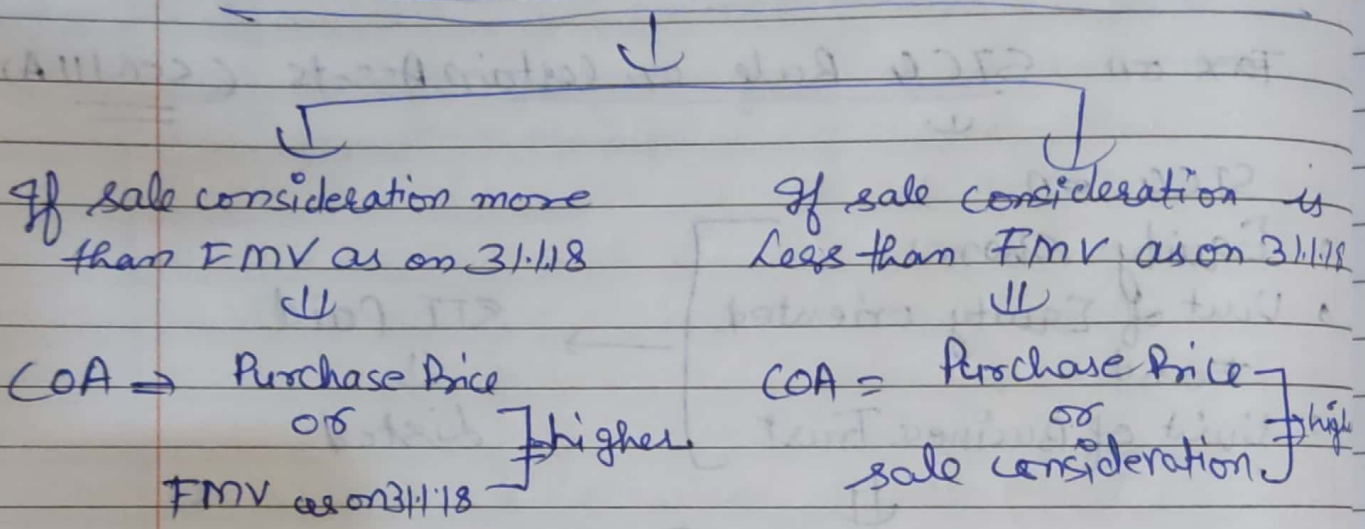 If sale consideration more
than FMV as on 31.1.18
COA ⇒ Purchase Price
or
FMV as on 31.1.18
higher
If sale consideration is
Less than FMV as on 31.1.18
COA = Purchase Price
or
sale consideration
high